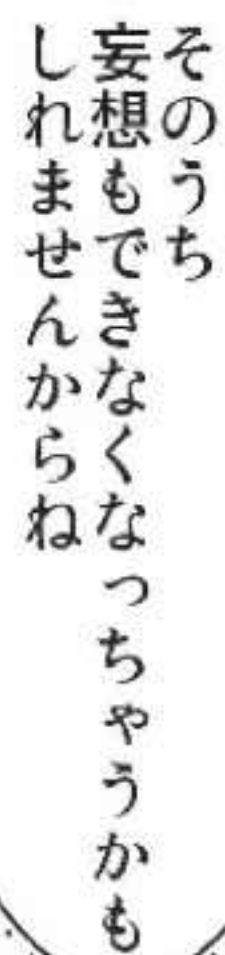 そのうち
妄想もできなくなっちゃうかも
しれませんからね